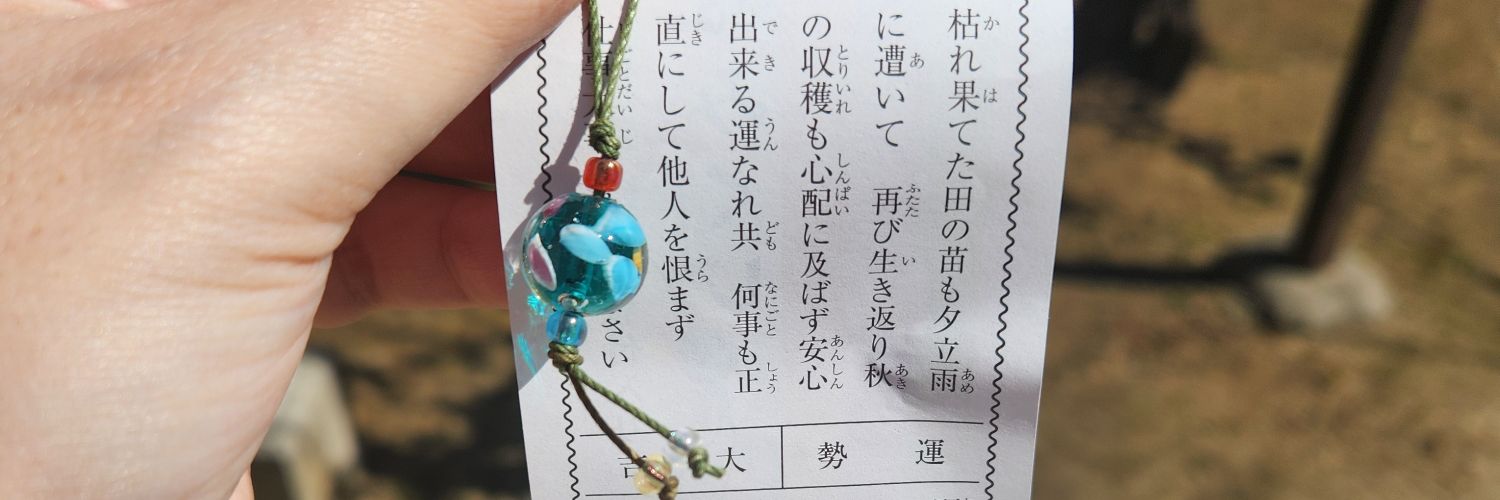 枯れ果てた田の苗も夕立雨
に遭いて 再び生き返り秋
の収穫も心配に及ばず安心
出来る運なれ共 何事も正
直にして他人を恨まず
仕事
さい
運勢
大吉